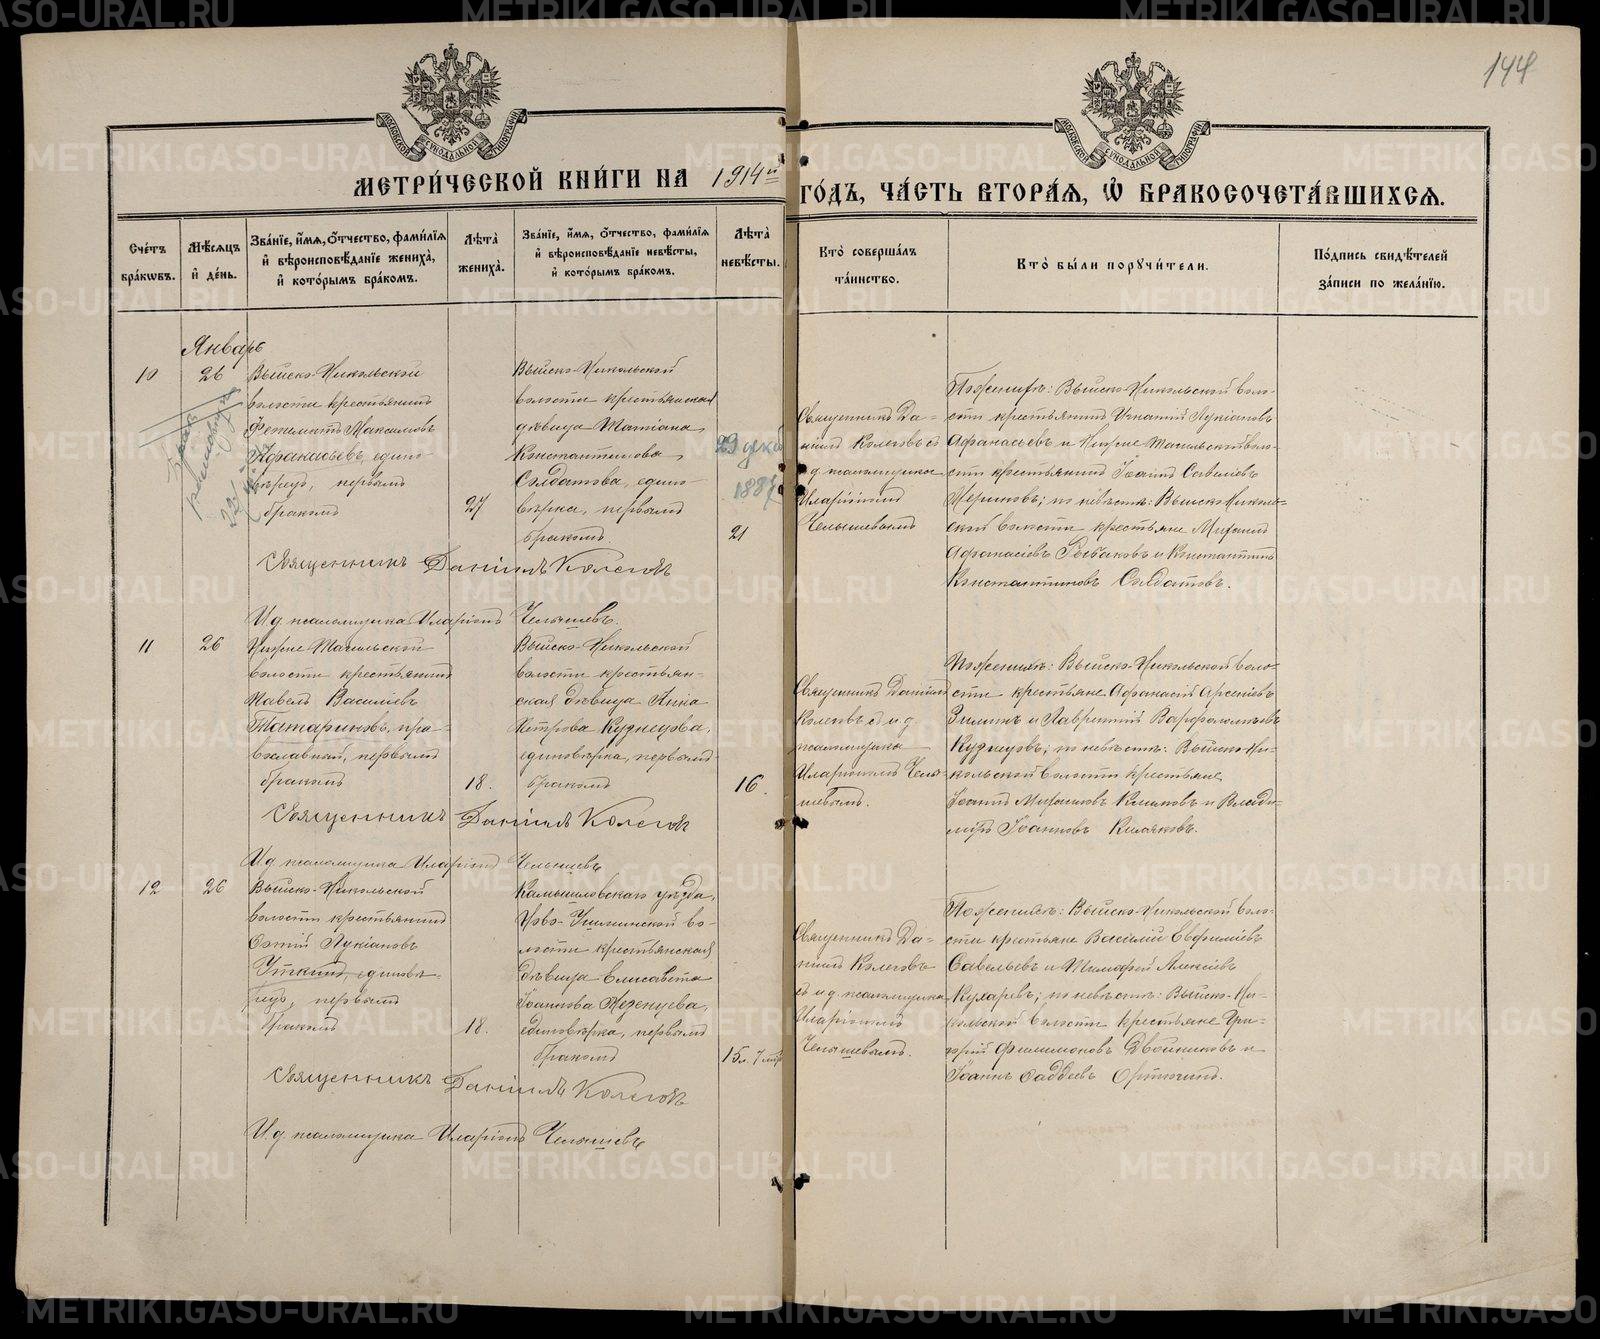 144
МОСКОВСКОЙ СУНОДАЛЬНОЙ ТИПОГРАФІИ
МОСКОВСКОЙ СУНОДАЛЬНОЙ ТИПОГРАФІИ
МЕТРИ́ЧЕСКОЙ КНИ́ГИ НА 1914й ГО́ДЪ, ЧА́СТЬ ВТОРА́Я, Ѡ БРАКОСОЧЕТА́ВШИХСЯ.
Сче́тъ бра́кωвъ.
Мѣ́сяцъ и҆ де́нь.
Зва́нїе, и҆́мя, ѻ҆́тчество, фами́лїя
и҆ вѣроисповѣ́данїе жениха̀,
и҆ кото́рымъ бра́комъ.
Лѣ́та жениха̀.
Зва́нїе, и҆́мя, ѻ҆́тчество, фами́лїя
и҆ вѣроисповѣ́данїе невѣ́сты,
и҆ кото́рымъ бра́комъ.
Лѣ́та невѣ́сты.
Кто̀ соверша́лъ
та́инство.
Кто̀ бы́ли порꙋчи́тели.
По́дпись свидѣ́телей
за́писи по жела́нїю.
Январь
10
26
Выйско-Никольской
волости крестьянинъ
Максимовъ
Афанасьевъ, едино-
вѣрецъ, первымъ
бракомъ
27
Выйско-Никольской
волости крестьянская
дѣвица Татіана
Константинова
Солдатова, едино-
вѣрка, первымъ
бракомъ.
21
23 дека
Священникъ Да-
ніилъ Колеговъ съ
и. д. псаломщика
Иларіономъ
Челышевымъ
По женихѣ: Выйско-Никольской воло-
сти крестьянинъ Игнатій Лукіановъ
Афанасьевъ и Нижне Тагильской воло-
сти крестьянинъ Іоаннъ Савеліевъ
по невѣстѣ: Выйско-Николь-
ской волости крестьяне
Рыбаковъ и Константинъ
Константиновъ Солдатовъ.
Священникъ Даніилъ Колеговъ
И. д. псаломщика Иларіонъ Челышевъ.
11
26
Нижне Тагильской
волости крестьянинъ
Павелъ Василіевъ
Татариновъ, пра-
вославный, первымъ
бракомъ
18.
Выйско-Никольской
волости крестьян-
ская дѣвица Анна
Петрова Кузнецова,
единовѣрка, первымъ
бракомъ
16.
Священникъ Даніилъ
Колеговъ съ и. д.
псаломщика
Иларіономъ Челы-
шевымъ.
По женихѣ: Выйско-Никольской воло-
сти крестьяне Афанасій Арсеніевъ
Зилинъ и Лаврентій Варфоломѣевъ
Кузнецовъ; по невѣстѣ: Выйско-Ни-
кольской волости крестьяне
Іоаннъ и Влади-
міръ Іоанновъ
Священникъ Даніилъ Колеговъ
И. д. псаломщика Иларіонъ Челышевъ
12
26
Выйско-Никольской
волости крестьянинъ
Фотій Лукіановъ
Уткинъ, единовѣ-
рецъ, первымъ
бракомъ
18.
Камышловскаго уѣзда,
волости крестьянская
дѣвица Елисавета
Іоаннова
единовѣрка, первымъ
бракомъ
15 л. 7 мѣс
Священникъ Да-
ніилъ Колеговъ
съ и. д. псаломщика
Иларіономъ
Челышевымъ.
По женихѣ: Выйско-Никольской воло-
сти крестьяне Василій Евфиміевъ
Савельевъ и Алексіевъ
Кухаревъ; по невѣстѣ: Выйско-Ни-
кольской волости крестьяне Гри-
горій Филимоновъ Двойниковъ и
Іоаннъ Фаддеевъ
Священникъ Даніилъ Колеговъ
И. д. псаломщика Иларіонъ Челышевъ
METRIKI.GASO-URAL.RU